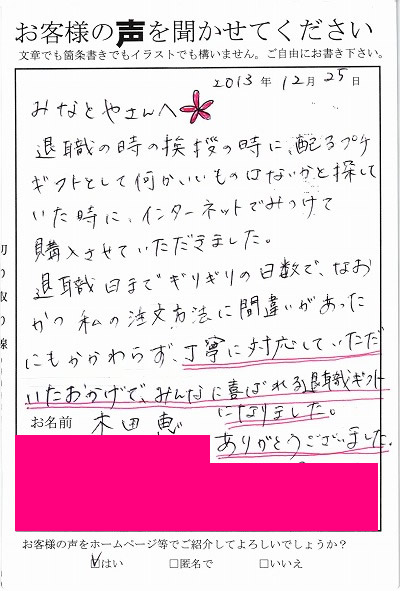 お客様の声を聞かせてください
文章でも箇条書きでもイラストでも構いません。ご自由にお書き下さい。
2013年12月25日
みなとやさんへ
退職の時の挨拶の時に、配るプチ
ギフトとして何かいいものはないかと探して
いた時に、インターネットでみつけて
購入させていただきました。
退職日までギリギリの日数で、なお
かつ私の注文方法に間違いがあった
にもかかわらず、丁寧に対応していただ
いたおかげで、みんなに喜ばれる退職ギフト
になりました。
ありがとうございました。
お名前 木田 恵
切り取り線
お客様の声をホームページ等でご紹介してよろしいでしょうか？
☑はい □匿名で □いいえ